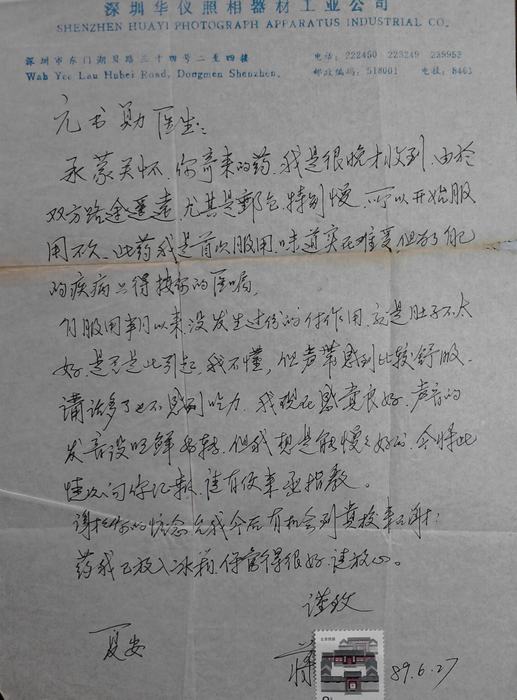 深圳华仪照相器材工业公司
SHENZHEN HUAYI PHOTOGRAPH APPARATUS INDUSTRIAL CO.
深圳市东门湖贝路三十四号二至四楼 电话: 222450 223249 239952
Wah Yee Lau Hubei Road, Dongmen Shenzhen. 邮政编码: 518001 电挂: 8461
元书勋医生:
承蒙关怀,你寄来的药,我是很晚才收到,由於
双方路途遥远,尤其是邮包特别慢,所以开始服
用不久,此药我是首次服用,味道实在难受,但为了自己
的疾病只得按您的医嘱。
自服用半月以来,没发生过份的付作用,就是肚子不太
好,是不是此引起,我不懂,但声带感到比较舒服,
讲话多了也不感到吃力,我现在感觉良好,声音的
发音没明鲜好转,但我想是能慢慢好的,今将此
情况向你汇报,请有便来函指教。
谢谢你的怀念,允我今后有机会到贵校来谢谢!
药我已放入冰箱,保管得很好,请放心。
谨致
夏安
蒋 89.6.27